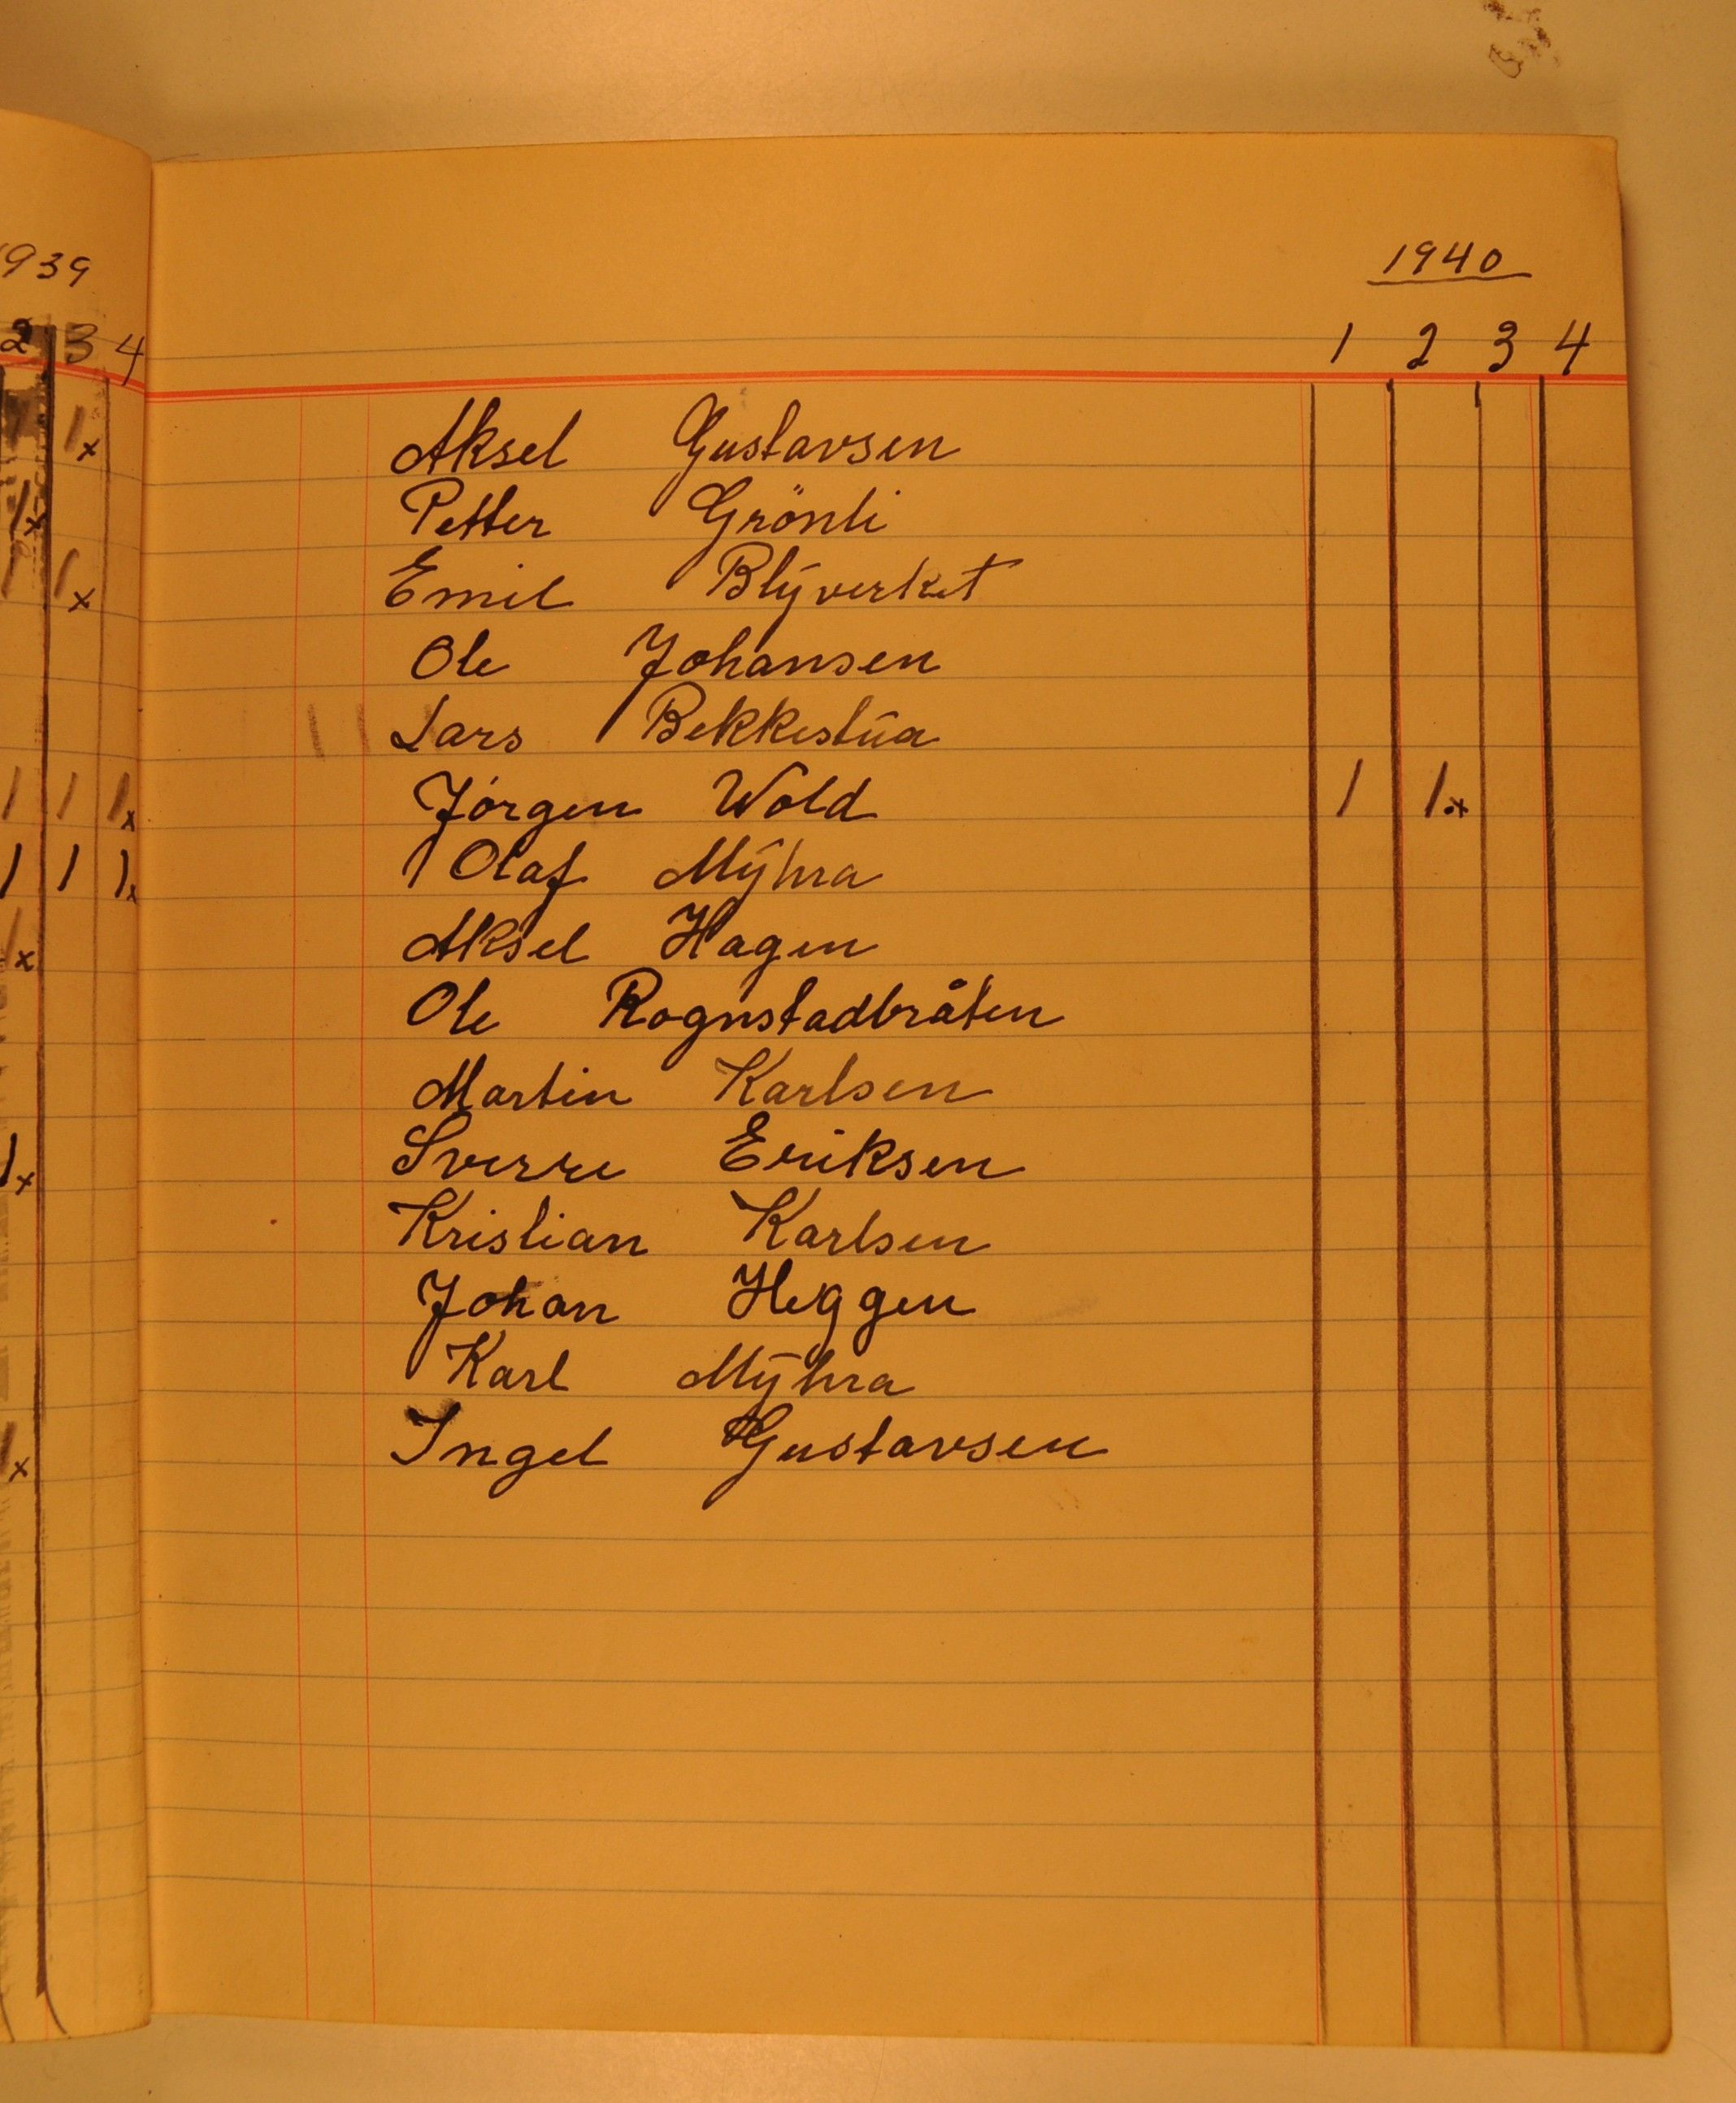 1939
2 3 4
1940
1 2 3 4
1x
Aksel Gustavsen
1x
Petter Grönli
1 1x
Emil Blyverket
Ole Johansen
Lars Bekkestua
1 1 1x
Jörgen Wold 1 1x
1 1 1x
Olaf Myhra
x
Aksel Hagen
Ole Rognstadbråten
Martin Karlsen
1x
Sverre Eriksen
Kristian Karlsen
Johan Heggen
Karl Myhra
1x
Ingel Gustavsen